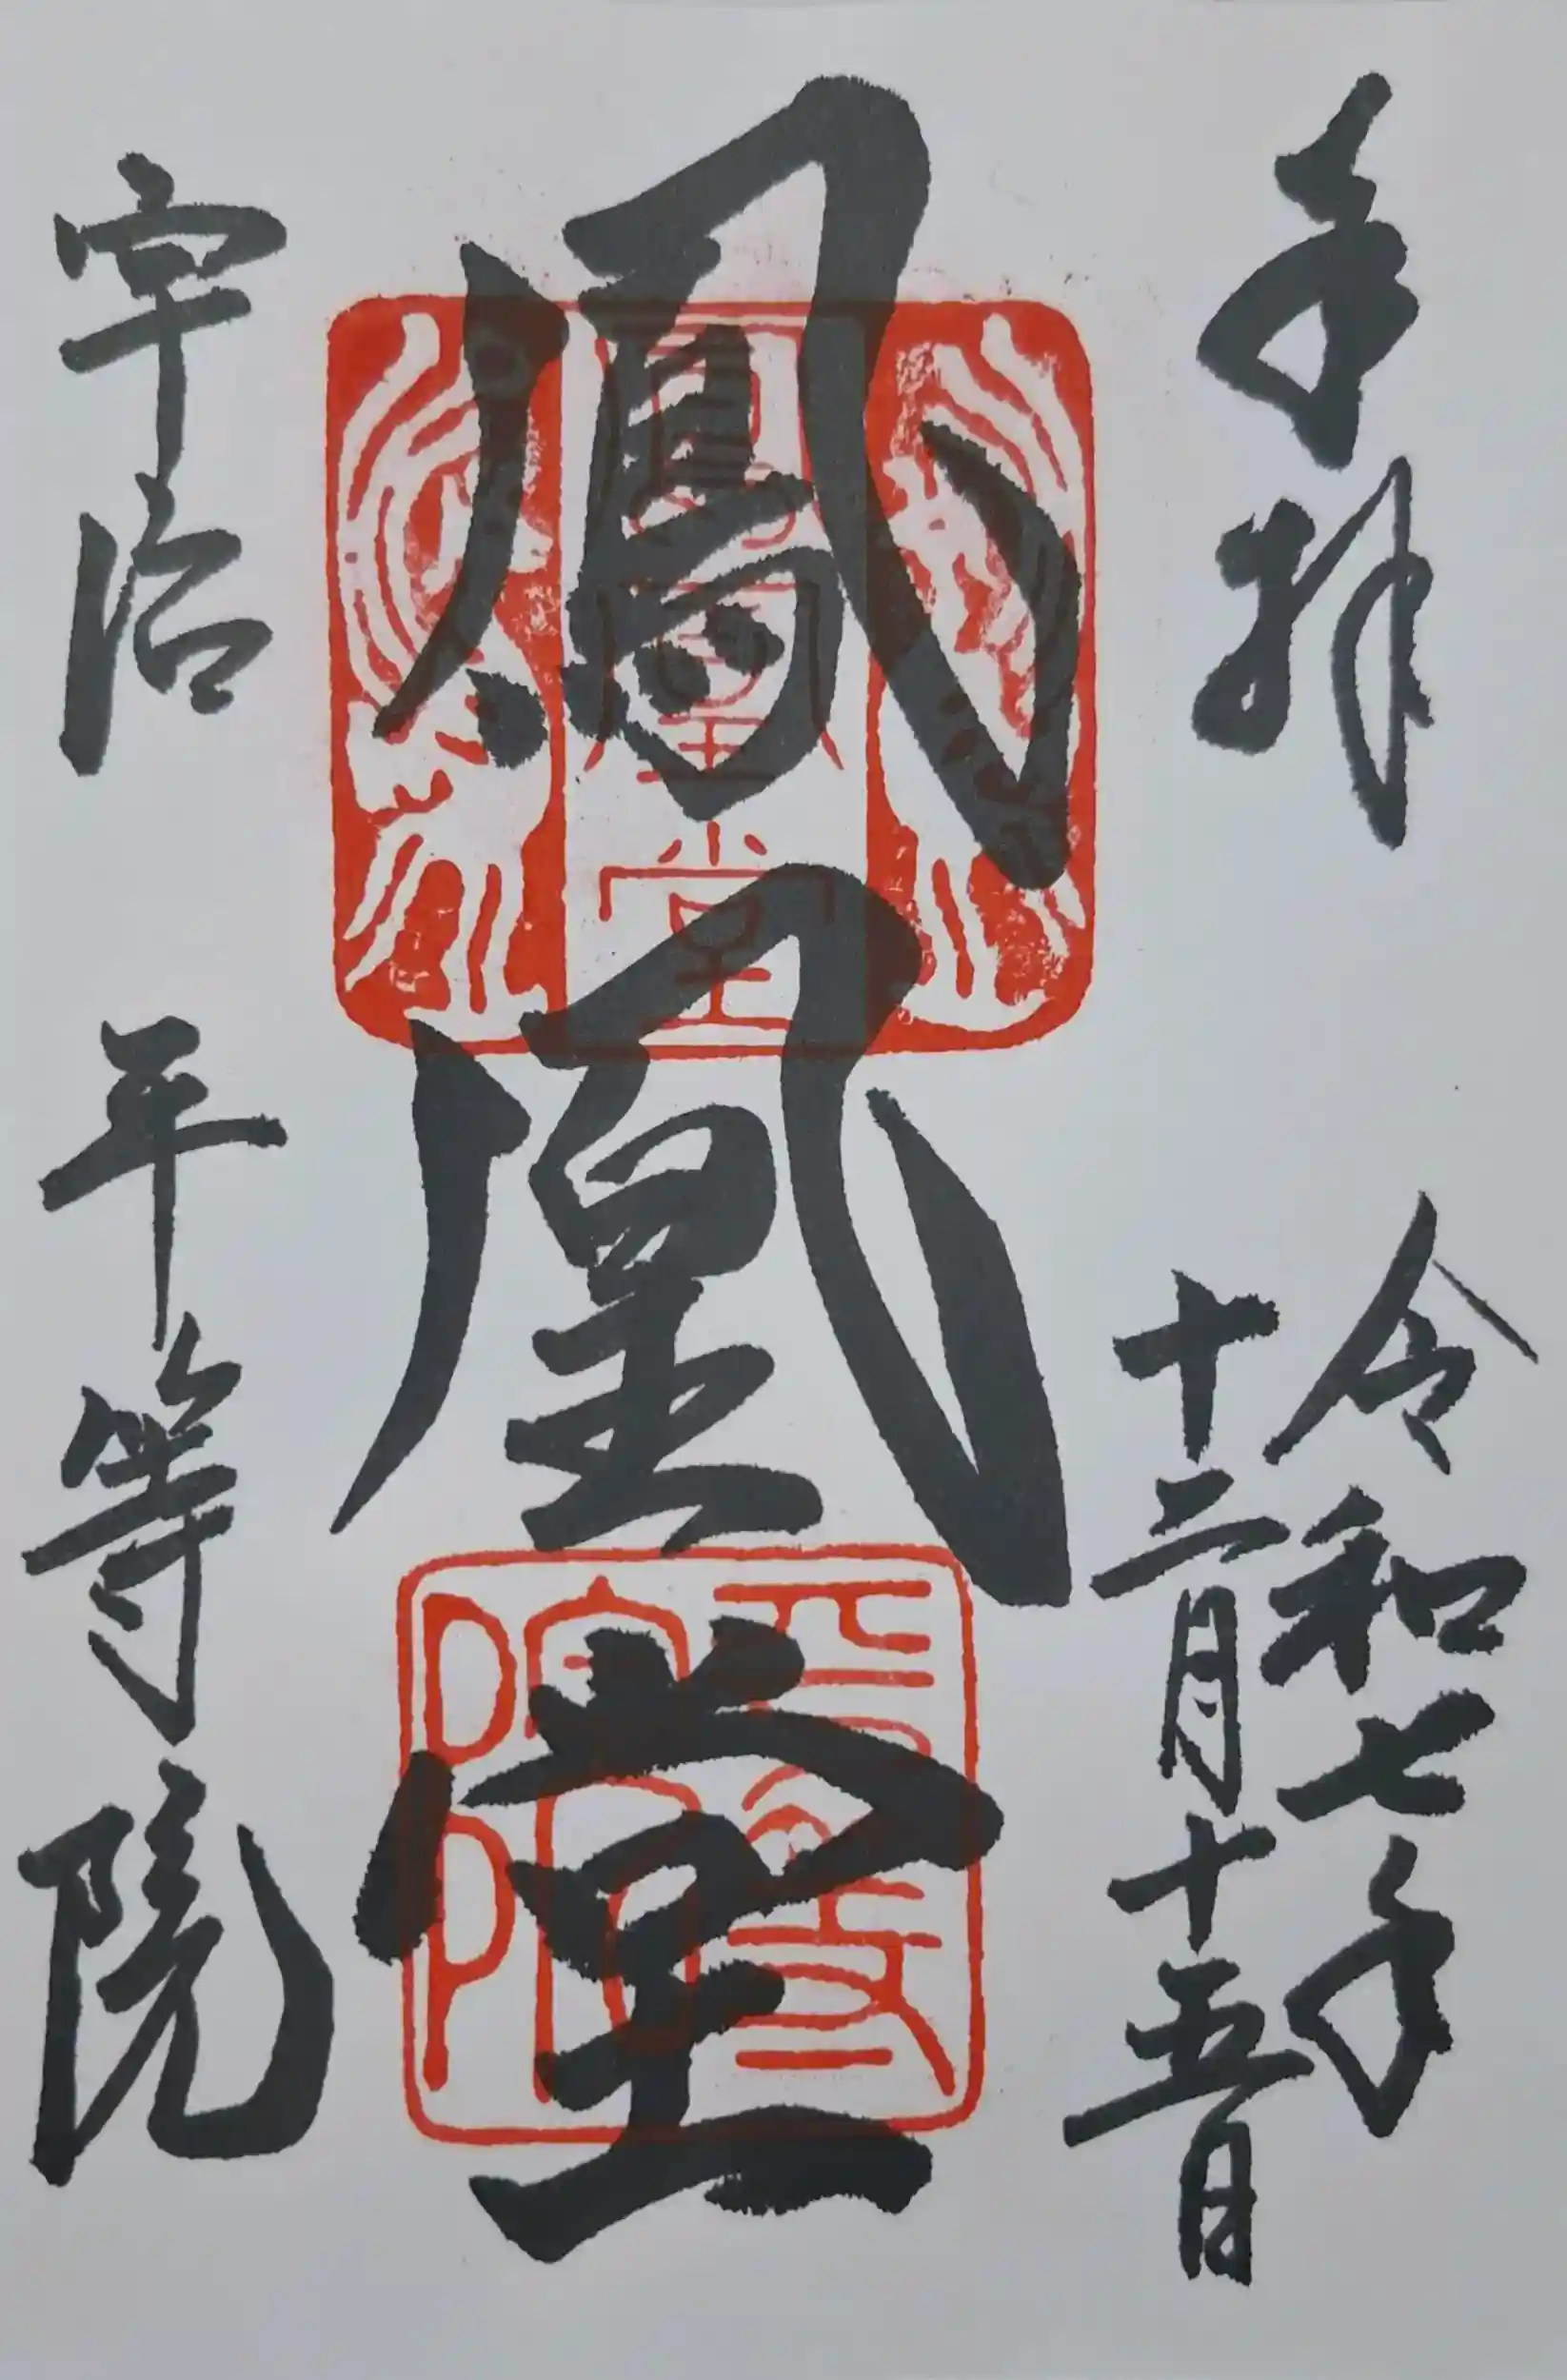 奉拝
令和七年
十二月十五日
鳳凰堂
鳳凰堂
平等院印
宇治 平等院